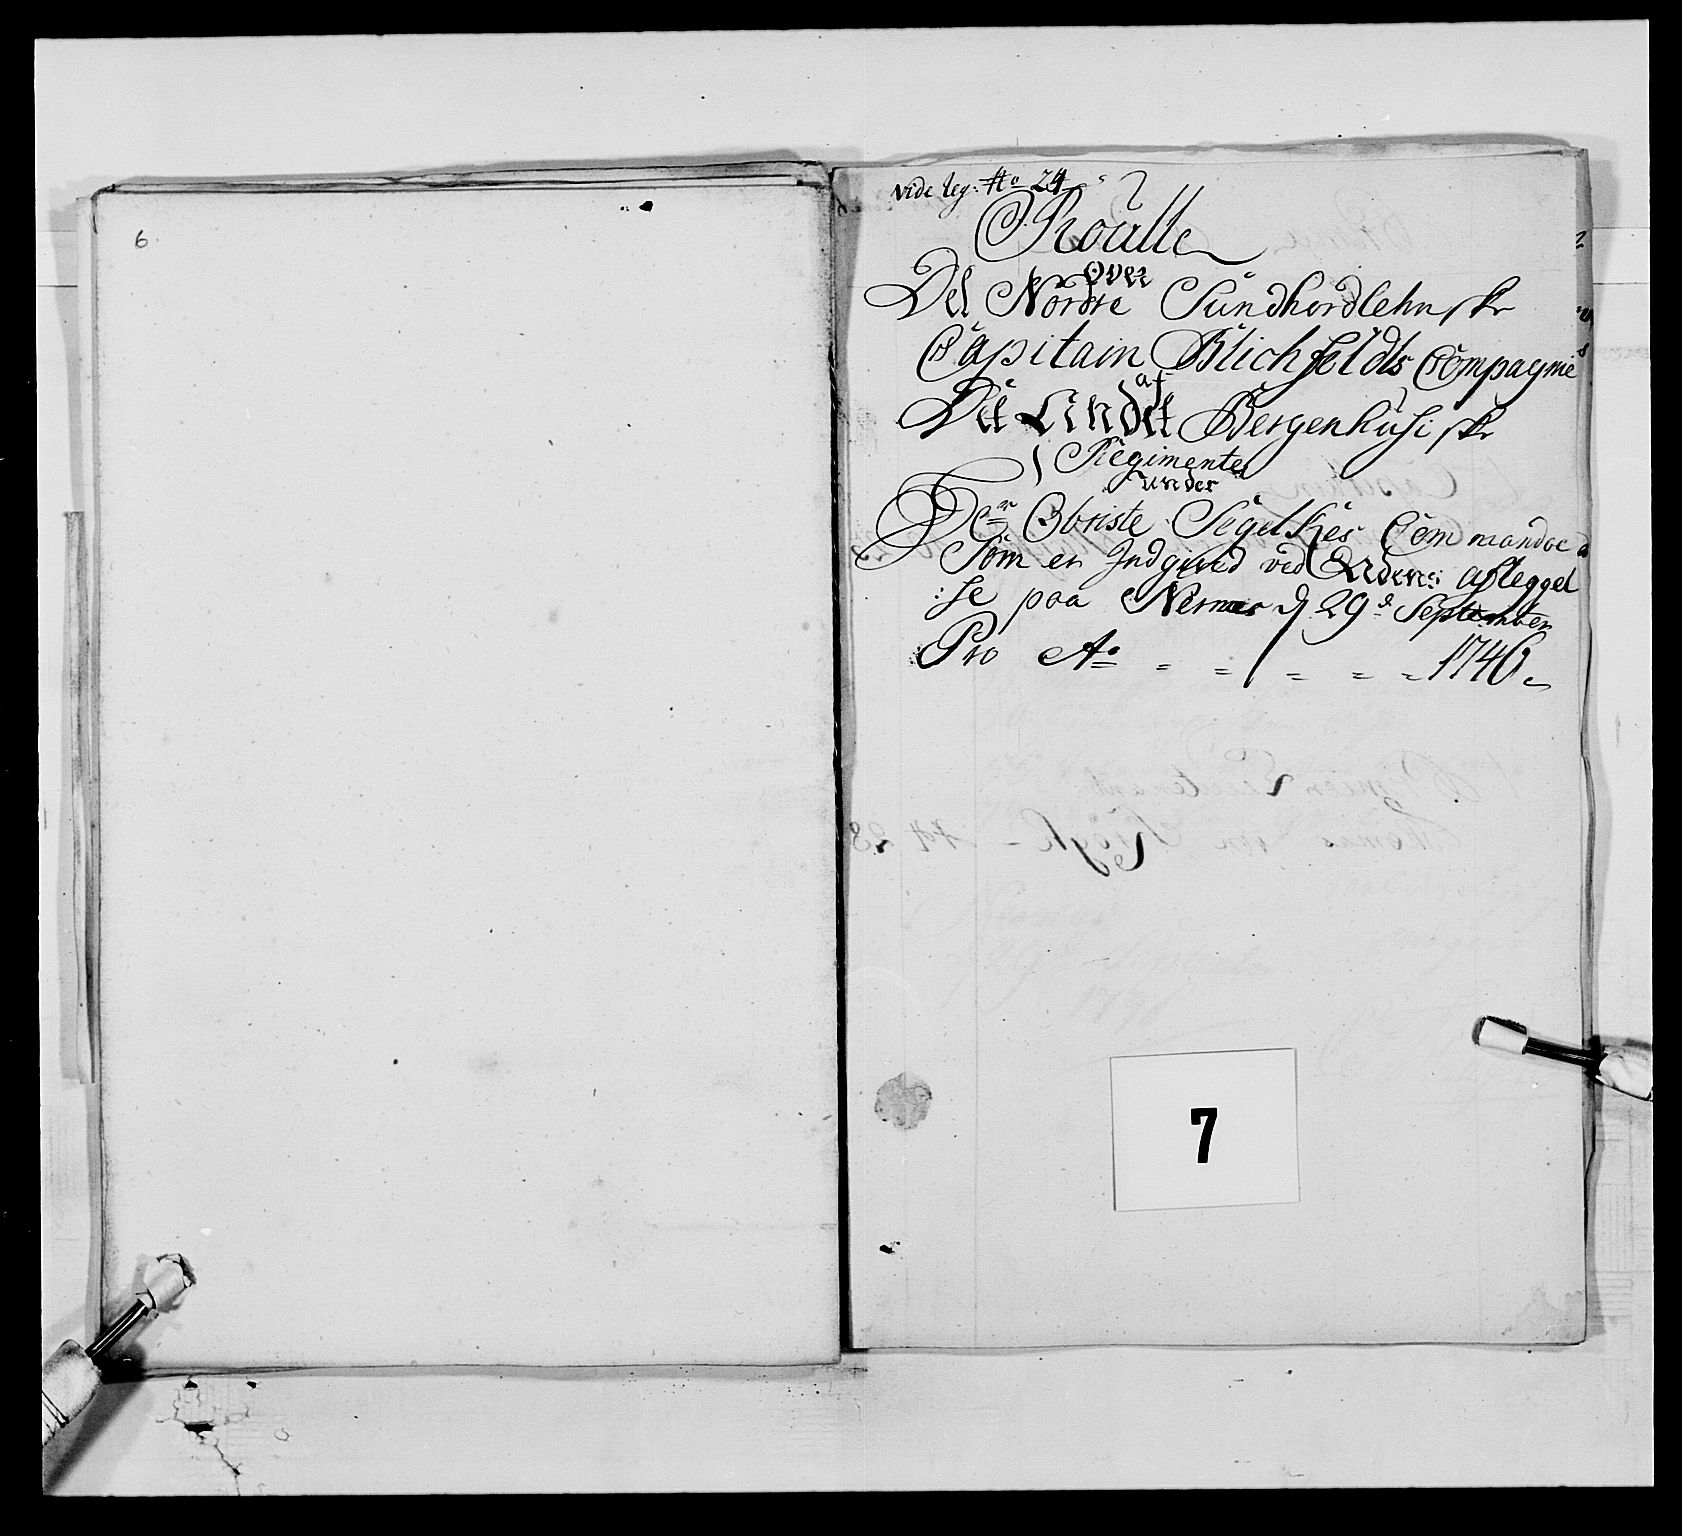 6.
Vide leg: No 24
Roulle
Over
Det Nordre Sundhordlehnske
Capitain Blichfeldts Compagnie
af
Det Andet Bergenhusiske
Regimente
under
Hr Obriste Segelkes Commando
Som er Indgived ved Edens afleggel
:se paa Nernes d 29de September
Pro Ao = = = = = 1746
7